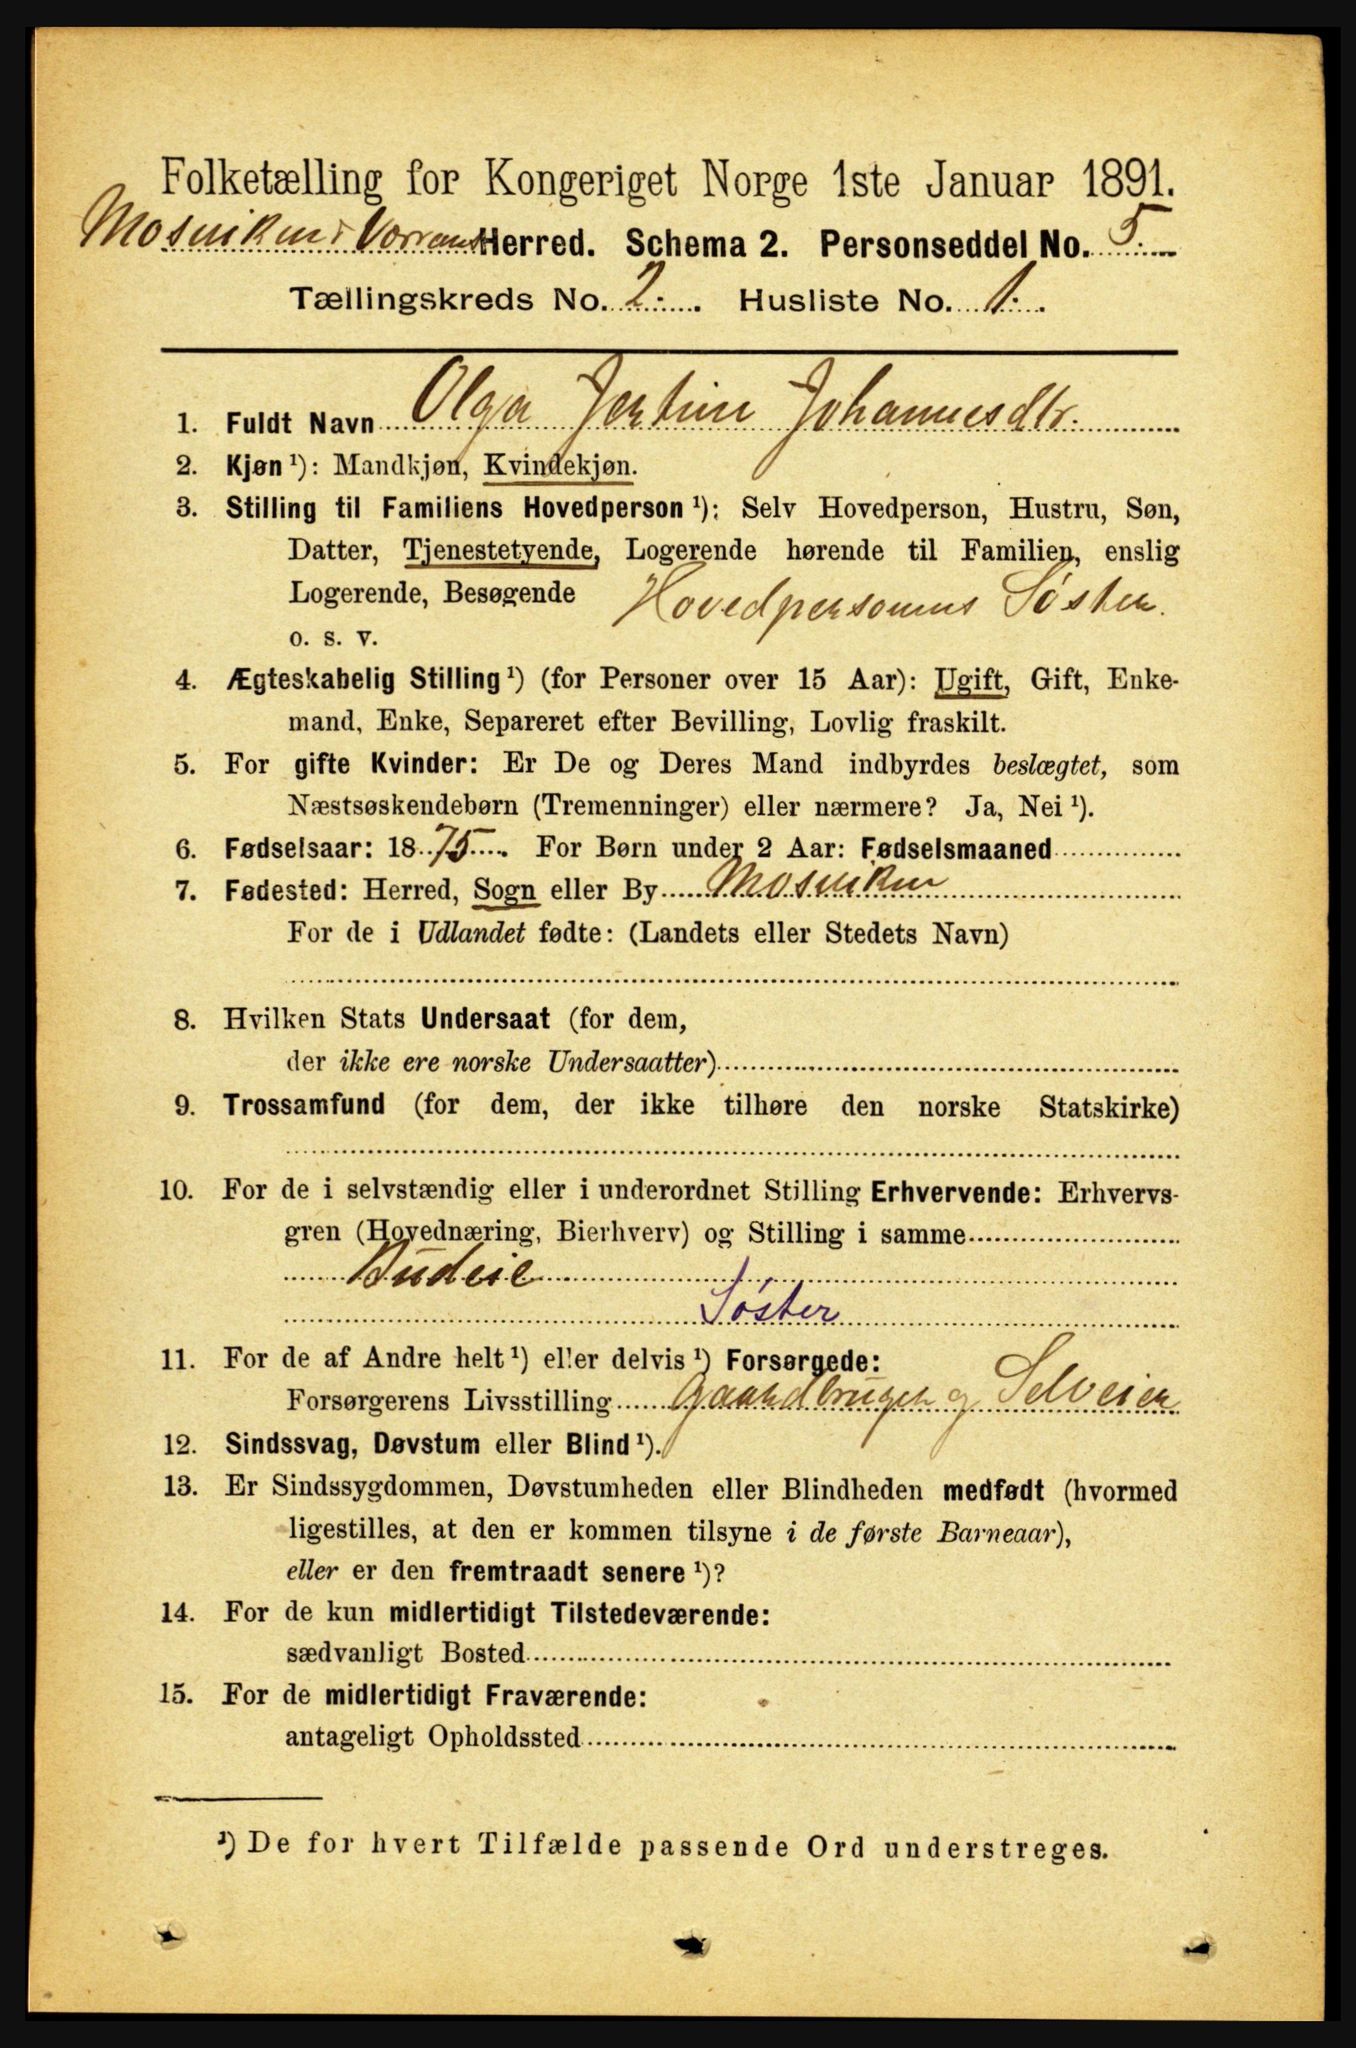 Folketælling for Kongeriget Norge 1ste Januar 1891.
Mosviken & Verran Herred. Schema 2. Personseddel No. 5.
Tællingskreds No. 2. Husliste No. 1.
1. Fuldt Navn Olga Jertine Johannesdtr.
2. Kjøn ¹): Mandkjøn, Kvindekjøn.
3. Stilling til Familiens Hovedperson ¹): Selv Hovedperson, Hustru, Søn,
Datter, Tjenestetyende, Logerende hørende til Familien, enslig
Logerende, Besøgende Hovedpersonens Søster.
o. s. v.
4. Ægteskabelig Stilling ¹) (for Personer over 15 Aar): Ugift, Gift, Enke-
mand, Enke, Separeret efter Bevilling, Lovlig fraskilt.
5. For gifte Kvinder: Er De og Deres Mand indbyrdes beslægtet, som
Næstsøskendebørn (Tremenninger) eller nærmere? Ja, Nei ¹).
6. Fødselsaar: 1875. For Børn under 2 Aar: Fødselsmaaned
7. Fødested: Herred, Sogn eller By Mosviken
For de i Udlandet fødte: (Landets eller Stedets Navn)
8. Hvilken Stats Undersaat (for dem,
der ikke ere norske Undersaatter)
9. Trossamfund (for dem, der ikke tilhøre den norske Statskirke)
10. For de i selvstændig eller i underordnet Stilling Erhvervende: Erhvervs-
gren (Hovednæring, Bierhverv) og Stilling i samme
Budeie
Søster
11. For de af Andre helt ¹) eller delvis ¹) Forsørgede:
Forsørgerens Livsstilling Gaardbruger og Selveier
12. Sindssvag, Døvstum eller Blind ¹).
13. Er Sindssygdommen, Døvstumheden eller Blindheden medfødt (hvormed
ligestilles, at den er kommen tilsyne i de første Barneaar),
eller er den fremtraadt senere ¹)?
14. For de kun midlertidigt Tilstedeværende:
sædvanligt Bosted
15. For de midlertidigt Fraværende:
antageligt Opholdssted
¹) De for hvert Tilfælde passende Ord understreges.